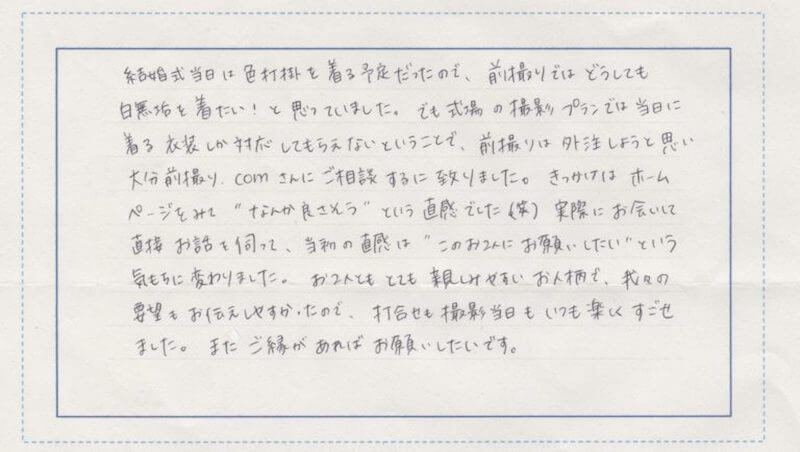 結婚式当日は色打掛を着る予定だったので、前撮りではどうしても
白無垢を着たい!と思っていました。でも式場の撮影プランでは当日に
着る衣装しか対応してもらえないということで、前撮りは外注しようと思い
大分前撮り.comさんにご相談するに致りました。きっかけはホーム
ページをみて"なんか良さそう"という直感でした(笑)実際にお会いして
直接お話を伺って、当初の直感は"このお2人にお願いしたい"という
気もちに変わりました。お2人ともとても親しみやすいお人柄で、我々の
要望もお伝えしやすかったので、打合せも撮影当日もいつも楽しくすごせ
ました。またご縁があればお願いしたいです。